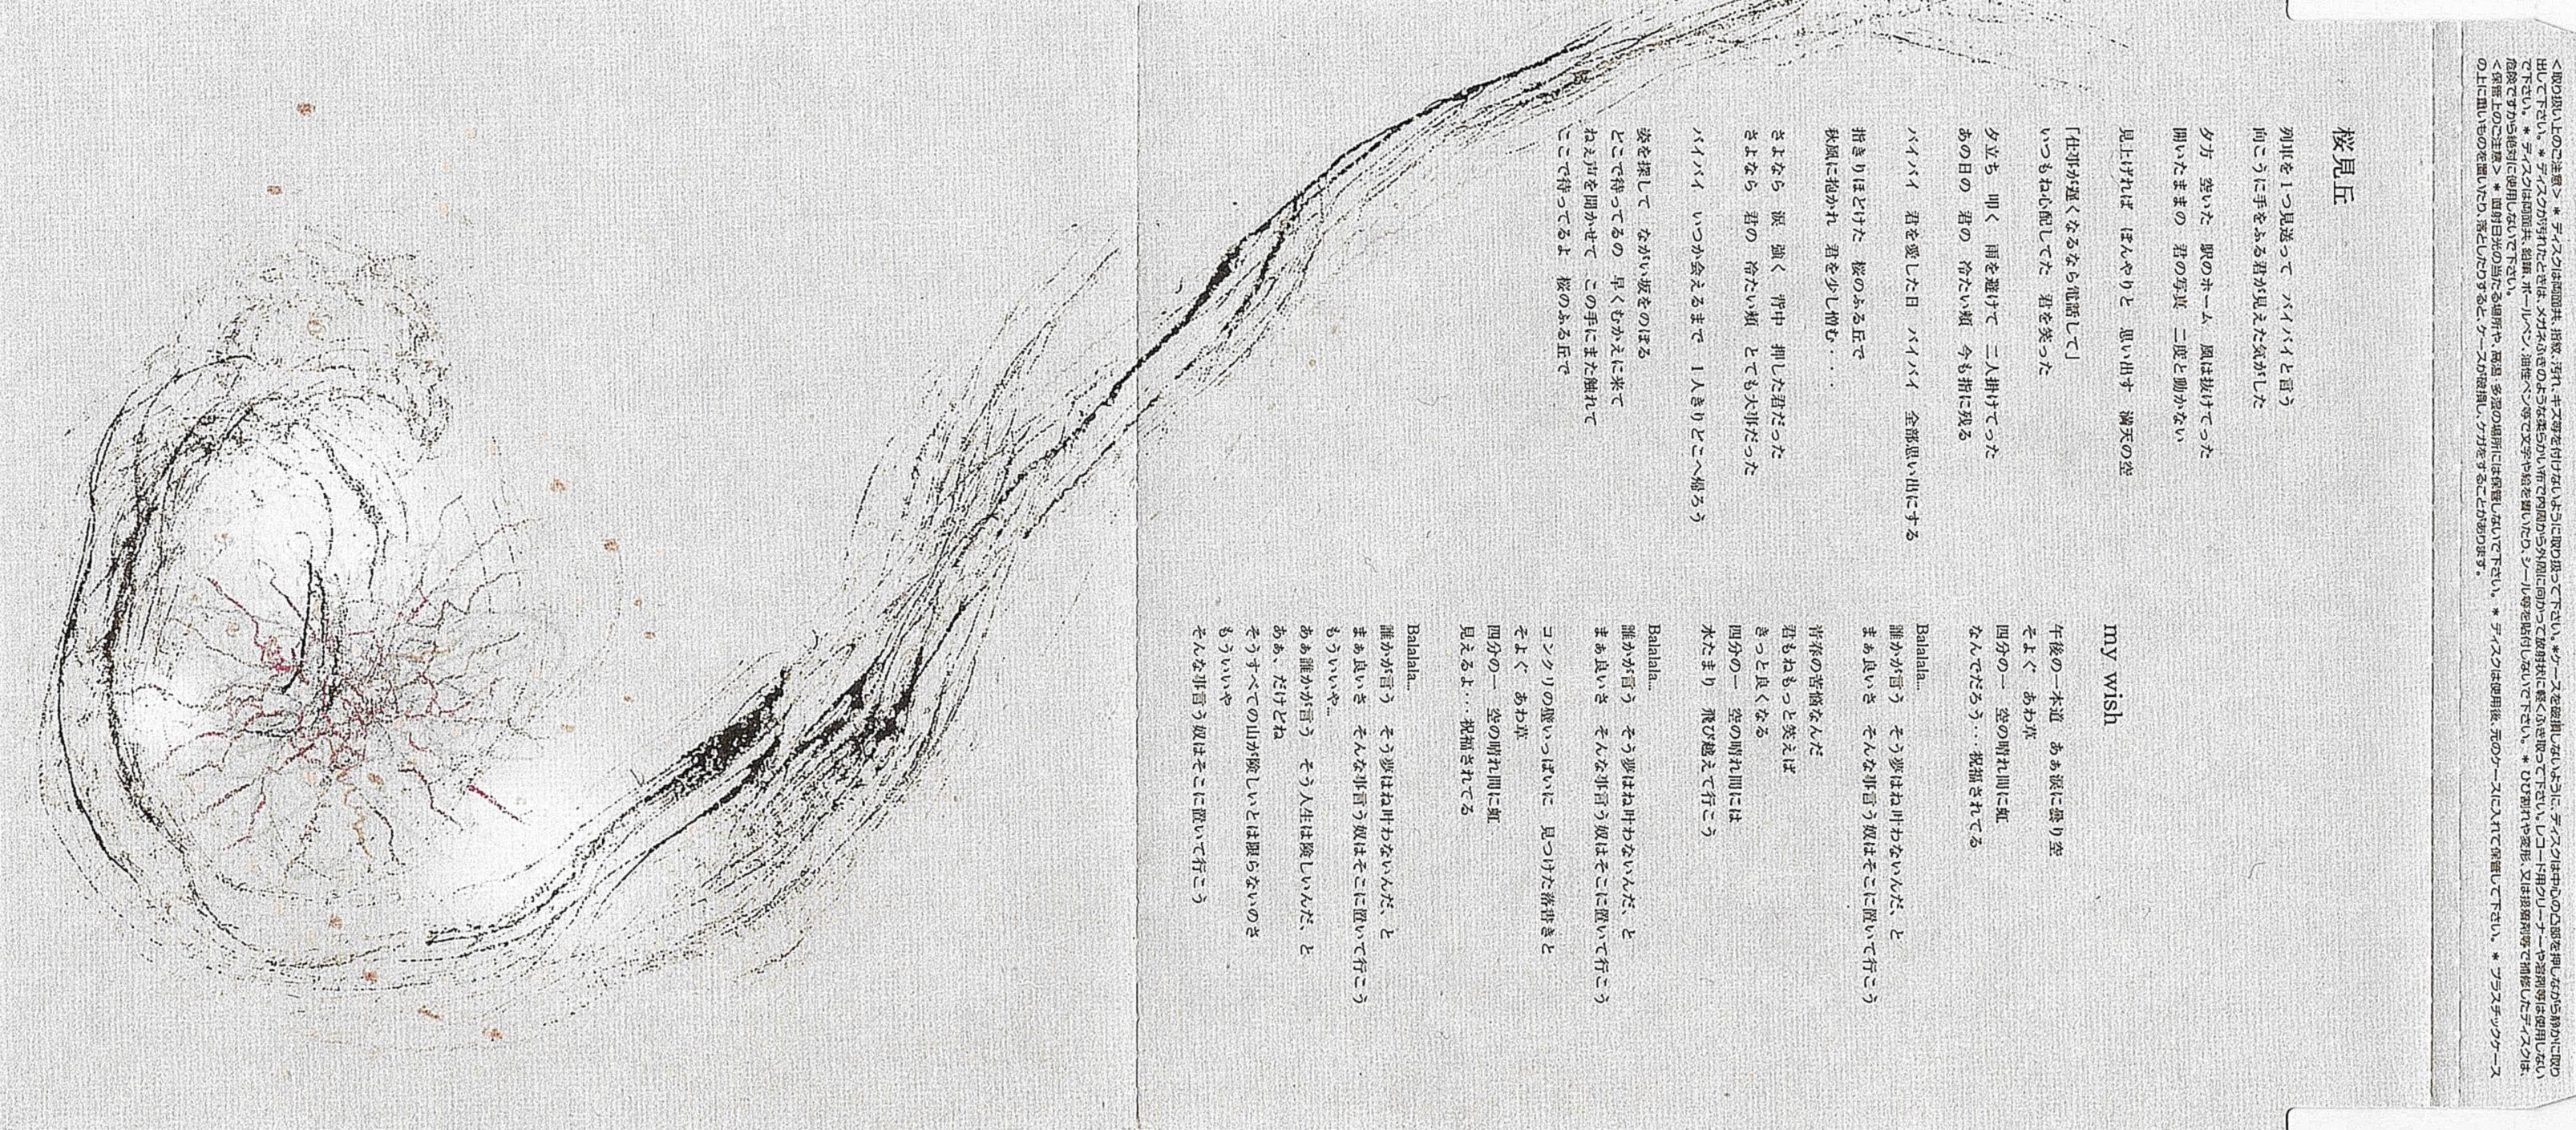 桜見丘
列車を1つ見送って　バイバイと言う
向こうに手をふる君が見えた気がした
夕方　空いた　駅のホーム　風は抜けてった
開いたままの　君の写真　二度と動かない
見上げれば　ぼんやりと　思い出す　満天の空
「仕事が遅くなるなら電話して」
いつもね心配してた　君を笑った
夕立ち　叩く　雨を避けて　二人掛けてった
あの日の　君の　冷たい頬　今も指に残る
バイバイ　君を愛した日　バイバイ　全部思い出にする
指きりほどけた　桜のふる丘で
秋風に抱かれ　君を少し憎む・・
さよなら　涙　強く　背中　押した君だった
さよなら　君の　冷たい頬　とても大事だった
バイバイ　いつか会えるまで　1人きりどこへ帰ろう
姿を探して　ながい坂をのぼる
どこで待ってるの　早くむかえに来て
ねぇ声を聞かせて　この手にまた触れて
ここで待ってるよ　桜のふる丘で
my wish
午後の一本道　あぁ涙に曇り空
そよぐ　あわ草
四分の一　空の晴れ間に虹
なんでだろう・・祝福されてる
Balalala...
誰かが言う　そう夢はね叶わないんだ、と
まぁ良いさ　そんな事言う奴はそこに置いて行こう
青春の苦悩なんだ
君もねもっと笑えば
きっと良くなる
四分の一　空の晴れ間には
水たまり　飛び越えて行こう
Balalala...
誰かが言う　そう夢はね叶わないんだ、と
まぁ良いさ　そんな事言う奴はそこに置いて行こう
コンクリの壁いっぱいに　見つけた落書きと
そよぐ　あわ草
四分の一　空の晴れ間に虹
見えるよ・・祝福されてる
Balalala...
誰かが言う　そう夢はね叶わないんだ、と
まぁ良いさ　そんな事言う奴はそこに置いて行こう
もういいや...
あぁ誰かが言う　そう人生は険しいんだ、と
あぁ、だけどね
そうすべての山が険しいとは限らないのさ
もういいや
そんな事言う奴はそこに置いて行こう
<取り扱い上のご注意>＊ディスクは両面共、指紋、汚れ、キズ等を付けないように取り扱って下さい。＊ケースを破損しないように、ディスクは中心の凸部を押しながら静かに取り
出して下さい。＊ディスクが汚れたときは、メガネふきのような柔らかい布で内周から外周に向かって放射状に軽くふき取って下さい。レコード用クリーナーや溶剤等は使用しない
で下さい。＊ディスクは両面共、鉛筆、ボールペン、油性ペン等で文字や絵を書いたり、シール等を貼付しないで下さい。＊ひび割れや変形、又は接着剤等で補修したディスクは、
危険ですから絶対に使用しないで下さい。
<保管上のご注意>＊直射日光の当たる場所や、高温・多湿の場所には保管しないで下さい。＊ディスクは使用後、元のケースに入れて保管して下さい。＊プラスチックケース
の上に重いものを置いたり、落としたりすると、ケースが破損し、ケガをすることがあります。